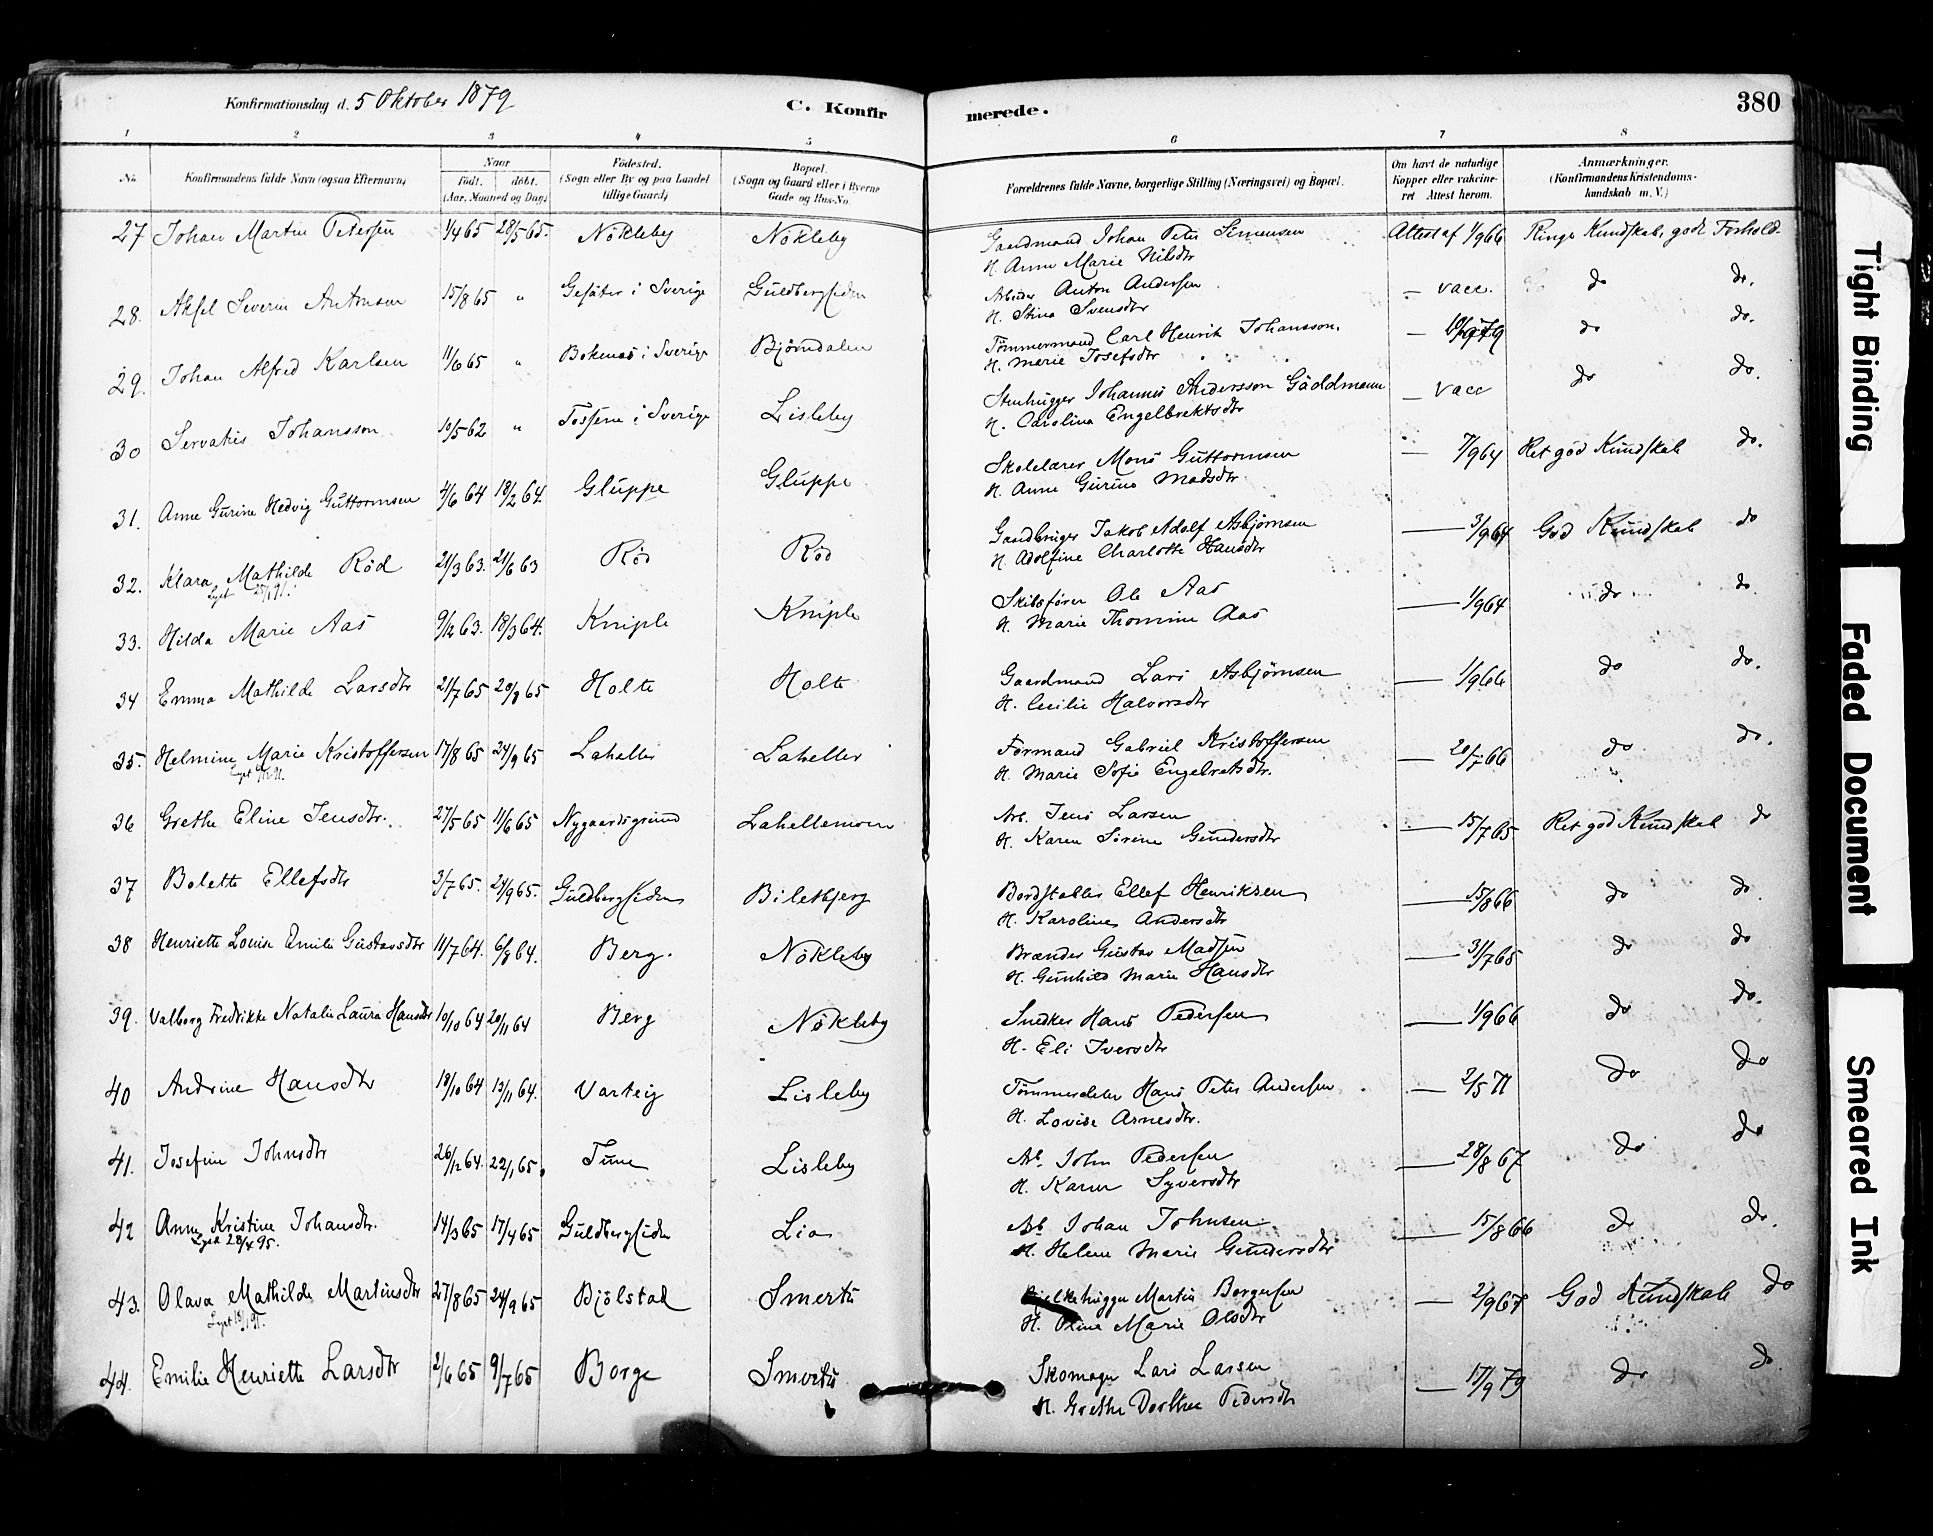 Konfirmationsdag d. 5 Oktober 1879
C. Konfirmerede.
380
1 2 3 4 5 6 7 8
No. Konfirmandens fulde Navn (ogsaa Efternavn) Naar født. døbt. (Aar, Maaned og Dag) Födested. (Sogn eller By og paa Landet tillige Gaard) Bopæl. (Sogn og Gaard eller i Byerne Gade og Hus-No. Forældrenes fulde Navne, borgerlige Stilling (Næringsvei) og Bopæl. Om havt de naturlige Kopper eller vaccineret Attest herom. Anmærkninger. (Konfirmandens Kristendomskundskab m. V.)
27 Johan Martin Petersen 1/4 65 28/5 65. Nökleby Nökleby Gaardmand Johan Peter Simensen Attest af 1/9 66 Ringe Kundskab, godt Forhold
H. Anne Marie Nilsdtr
28. Aksel Severin Antonsen 15/8 65 " Gesäter i Sverige Guldbergsiden Arbeider Anton Andersen — vacc. do do.
H. Stina Svensdtr
29. Johan Alfred Karlsen 11/6 65 " Bokenäs i Sverige Bjørndalen Tømmermand Carl Henrik Johansson. do do.
H. Marie Josefsdtr
30 Servatius Johansson 10/5 62 " Tossene i Sverige Lisleby Stenhugger Johannes Andersson Gäddmann — vacc do do.
H. Carolina Engelbrektsdtr
31. Anne Gurine Hedvig Guttormsen 4/6 64 18/2 64. Gluppe Gluppe Skolelærer Mons Guttormsen — 7/9 64 Ret god Kundskab do.
H. Anne Gurine Madsdtr
32. Klara Mathilde Röd 21/3 63. 21/6 63 Röd Röd Gaardbruger Jakob Adolf Asbjørnsen — 3/9 64 God Kundskab do
H. Adolfine Charlotte Hansdtr
33. Hilda Marie Aas 9/12 63. 18/3 64. Kniple Kniple Skibsfører Ole Aas — 1/9 64 do do.
H. Marie Thomine Aas
34 Emma Mathilde Larsdtr 21/7 65 20/8 65 Holte Holte Gaardmand Lars Asbjørnsen — 1/9 66 do do.
H. Cecilie Halvorsdtr
35. Helmine Marie Kristoffersen 17/8 65 24/9 65 Laheller Laheller Formand Gabriel Kristoffersen — 20/7 66 do do.
H. Marie Sofie Engelretsdtr.
36 Grethe Eline Jensdtr. 27/5 65 11/6 65 Nygaardsgrund Lahellemoen Arb. Jens Larsen — 15/7 65 Ret god Kundskab do
H. Karen Sirine Gundersdtr
37 Bolette Ellefsdtr 3/7 65. 24/9 65. Guldbergsiden Biletbjerg Bordstabler Ellef Henriksen — 15/8 66 do do
H. Karoline Andersdtr
38 Henriette Louise Emilie Gustavsdtr 11/7 64. 6/8 64. Berg. Nökleby Brænder Gustav Madsen — 31/7 65 do do
H. Gunhild Marie Hansdtr
39. Valborg Fredrikke Natalie Laura Hansdtr 10/10 64 20/11 64 Berg Nökleby Snedker Hans Pedersen — 1/9 66 do do.
H. Eli Iversdtr
40 Andrine Hansdtr 18/10 64 13/11 64. Varteig Lisleby Tømmerdeler Hans Peter Andersen — 2/5 71 do do
H. Lovise Arnesdtr.
41. Josefine Johnsdtr 26/12 64. 22/1 65. Tune Lisleby Arb. John Pedersen — 28/8 67 do do
H. Karen Syversdtr
42 Anne Kristine Johansdtr. 14/3 65 17/4 65 Guldbergsiden Lia Arb Johan Johnsen — 15/8 66 do do.
Lyst 28/4 95.
H. Helene Marie Gundersdtr
43. Olava Mathilde Martinsdtr 27/8 65 24/9 65 Bjölstad Smertu Martin Borgersen — 2/9 67 God Kundskab do
H. Oline Marie Olsdtr
44. Emilie Henriette Larsdtr 2/6 65 9/7 65 Borge Smertu Skomager Lars Larsen — 17/9 79 do do
H. Grethe Dorthea Pedersdtr
Tight Binding
Faded Document
Smeared Ink